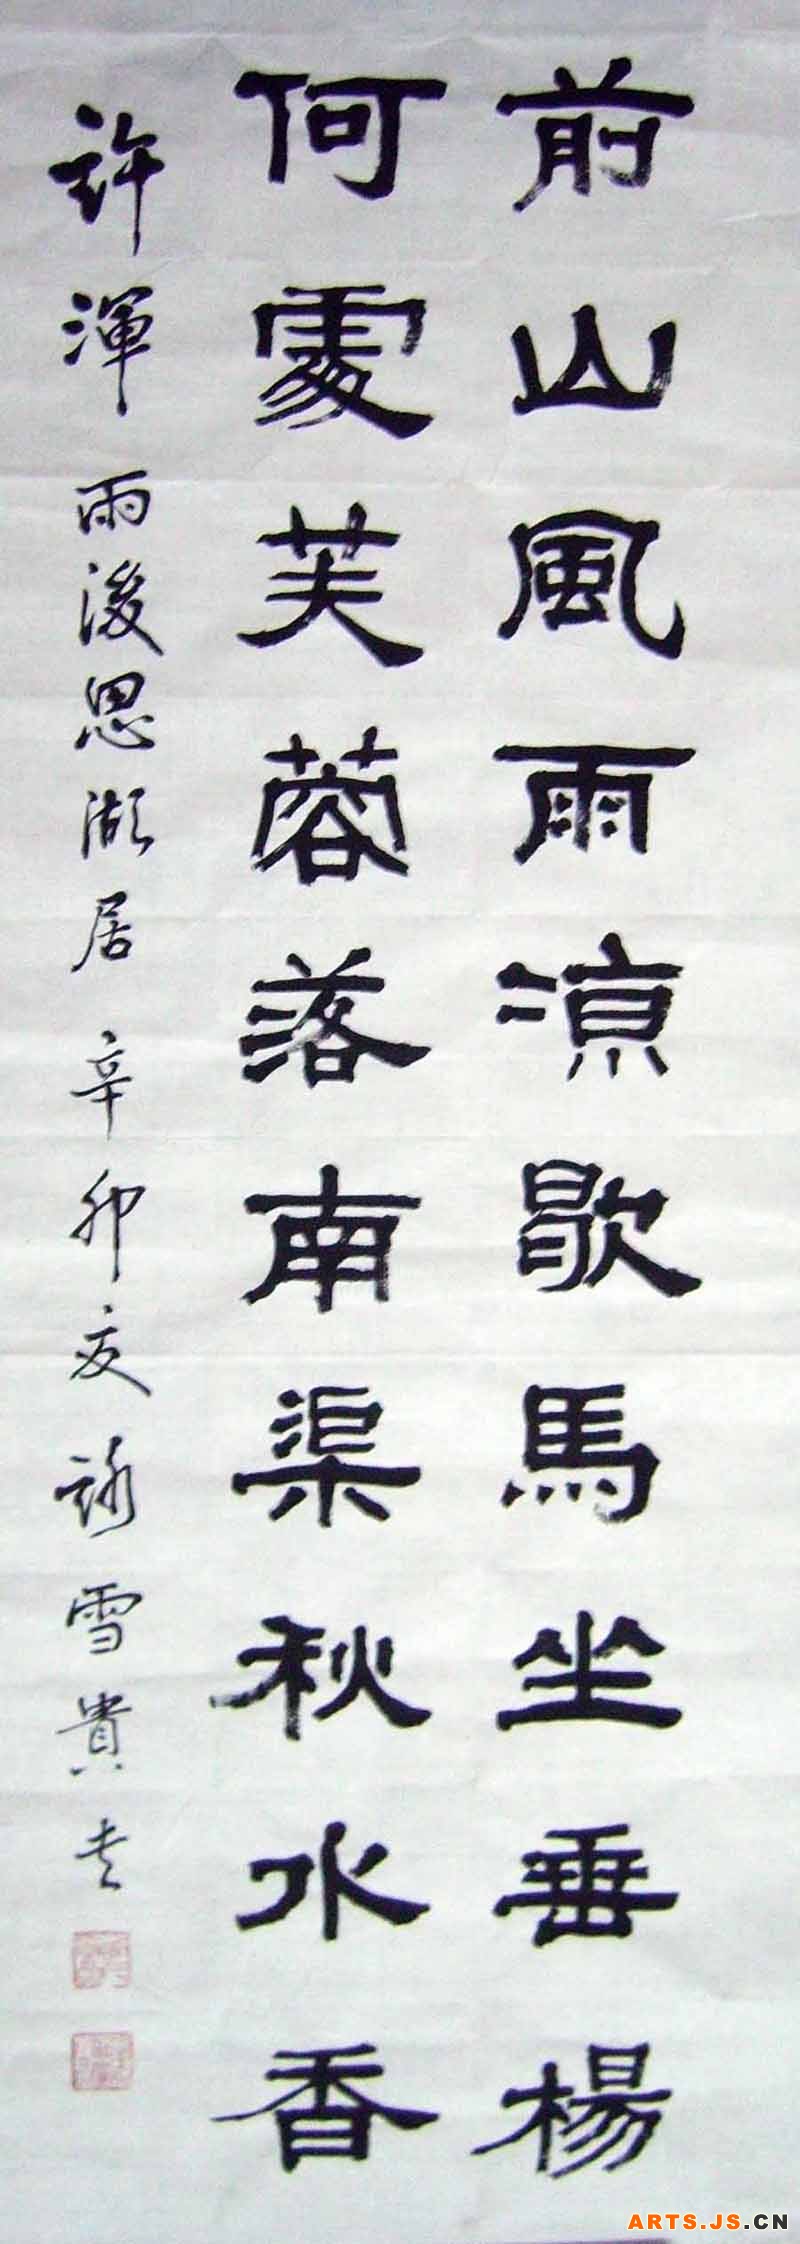 前山風雨涼歇馬坐垂楊
何處芙蓉落南渠秋水香
許渾雨後思湖居辛卯夏詠雪貴書
ARTS.JS.CN